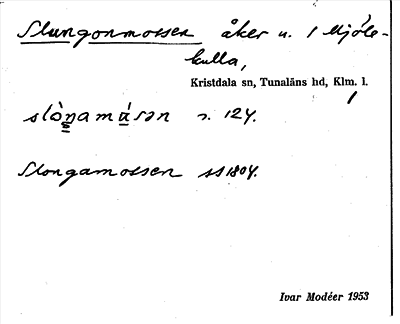 Slungonmossen åker u. 1 Mjöle-
kulla,
Kristdala sn, Tunaläns hd, Klm. l.
1
slòŋamúsən s. 124.
Slongamossen ss 1804.
Ivar Modéer 1953